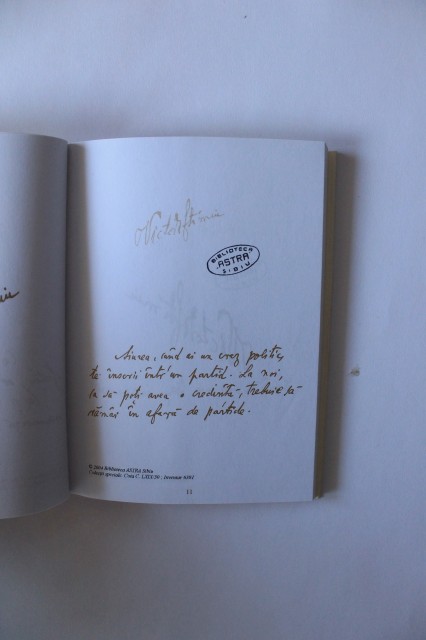 Victor Eftimiu
BIBLIOTECA
"ASTRA"
SIBIU
Aiurea, când ai un crez politic,
te înscrii într'un partid. La noi,
ca să poți avea o credință, trebuie să
rămâi în afară de partide.
© 2003 Biblioteca ASTRA Sibiu
Colecții speciale. Cota C. LXIX/29 ; Inventar
11